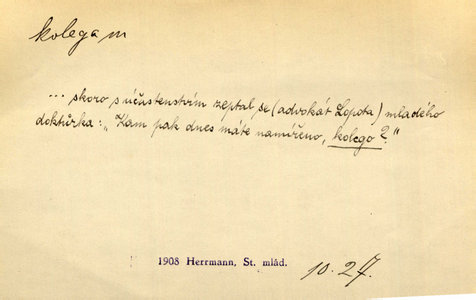 kolega m
... skoro s účastenstvím zeptal se (advokát Lopota) mladého
doktůrka: „Kam pak dnes máte namířeno, kolego?"
1908 Herrmann, St. mlád.
10. 27.